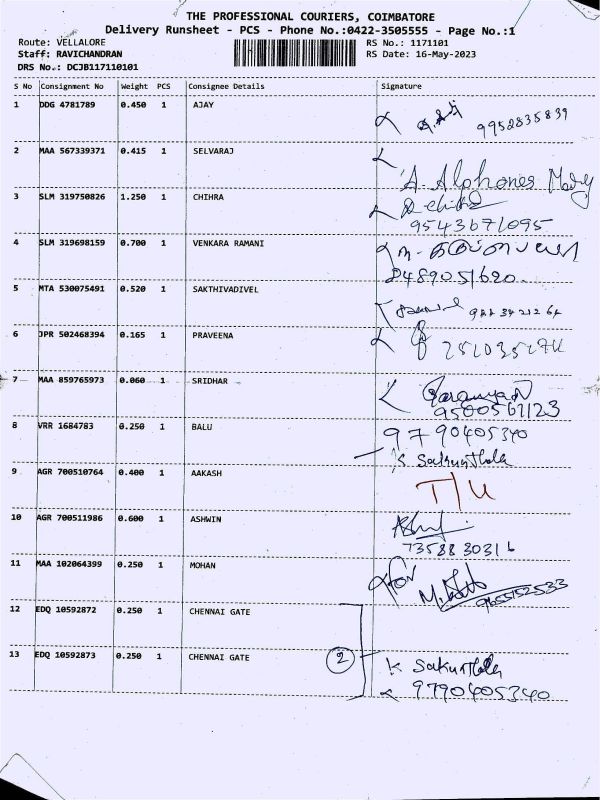 THE PROFESSIONAL COURIERS, COIMBATORE
Delivery Runsheet - PCS - Phone No.:0422-3505555 - Page No.:1
Route: VELLALORE
RS No.: 1171101
Staff: RAVICHANDRAN
RS Date: 16-May-2023
DRS No.: DCJB117110101
S No Consignment No Weight PCS Consignee Details Signature
1 DDG 4781789 0.450 1 AJAY
9952835839
2 MAA 567339371 0.415 1 SELVARAJ
A. Alphones Mary
3 SLM 319750826 1.250 1 CHIHRA
9543671095
4 SLM 319698159 0.700 1 VENKARA RAMANI
5 MTA 530075491 0.520 1 SAKTHIVADIVEL
6 JPR 502468394 0.165 1 PRAVEENA
7 MAA 859765973 0.060 1 SRIDHAR
8 VRR 1684783 0.250 1 BALU
9790405340
K Sakunthala
9 AGR 700510764 0.400 1 AAKASH
T/U
10 AGR 700511986 0.600 1 ASHWIN
7358830316
11 MAA 102064399 0.250 1 MOHAN
For
9655152533
12 EDQ 10592872 0.250 1 CHENNAI GATE
13 EDQ 10592873 0.250 1 CHENNAI GATE
2
K Sakunthala
9790405340